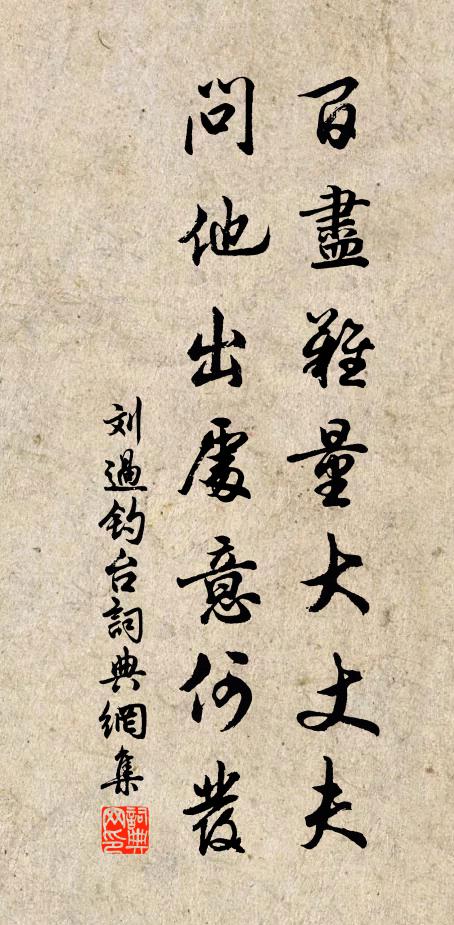 百盡難量大丈夫
問他出處意何發
刘過釣台詞典網集
詞典网印